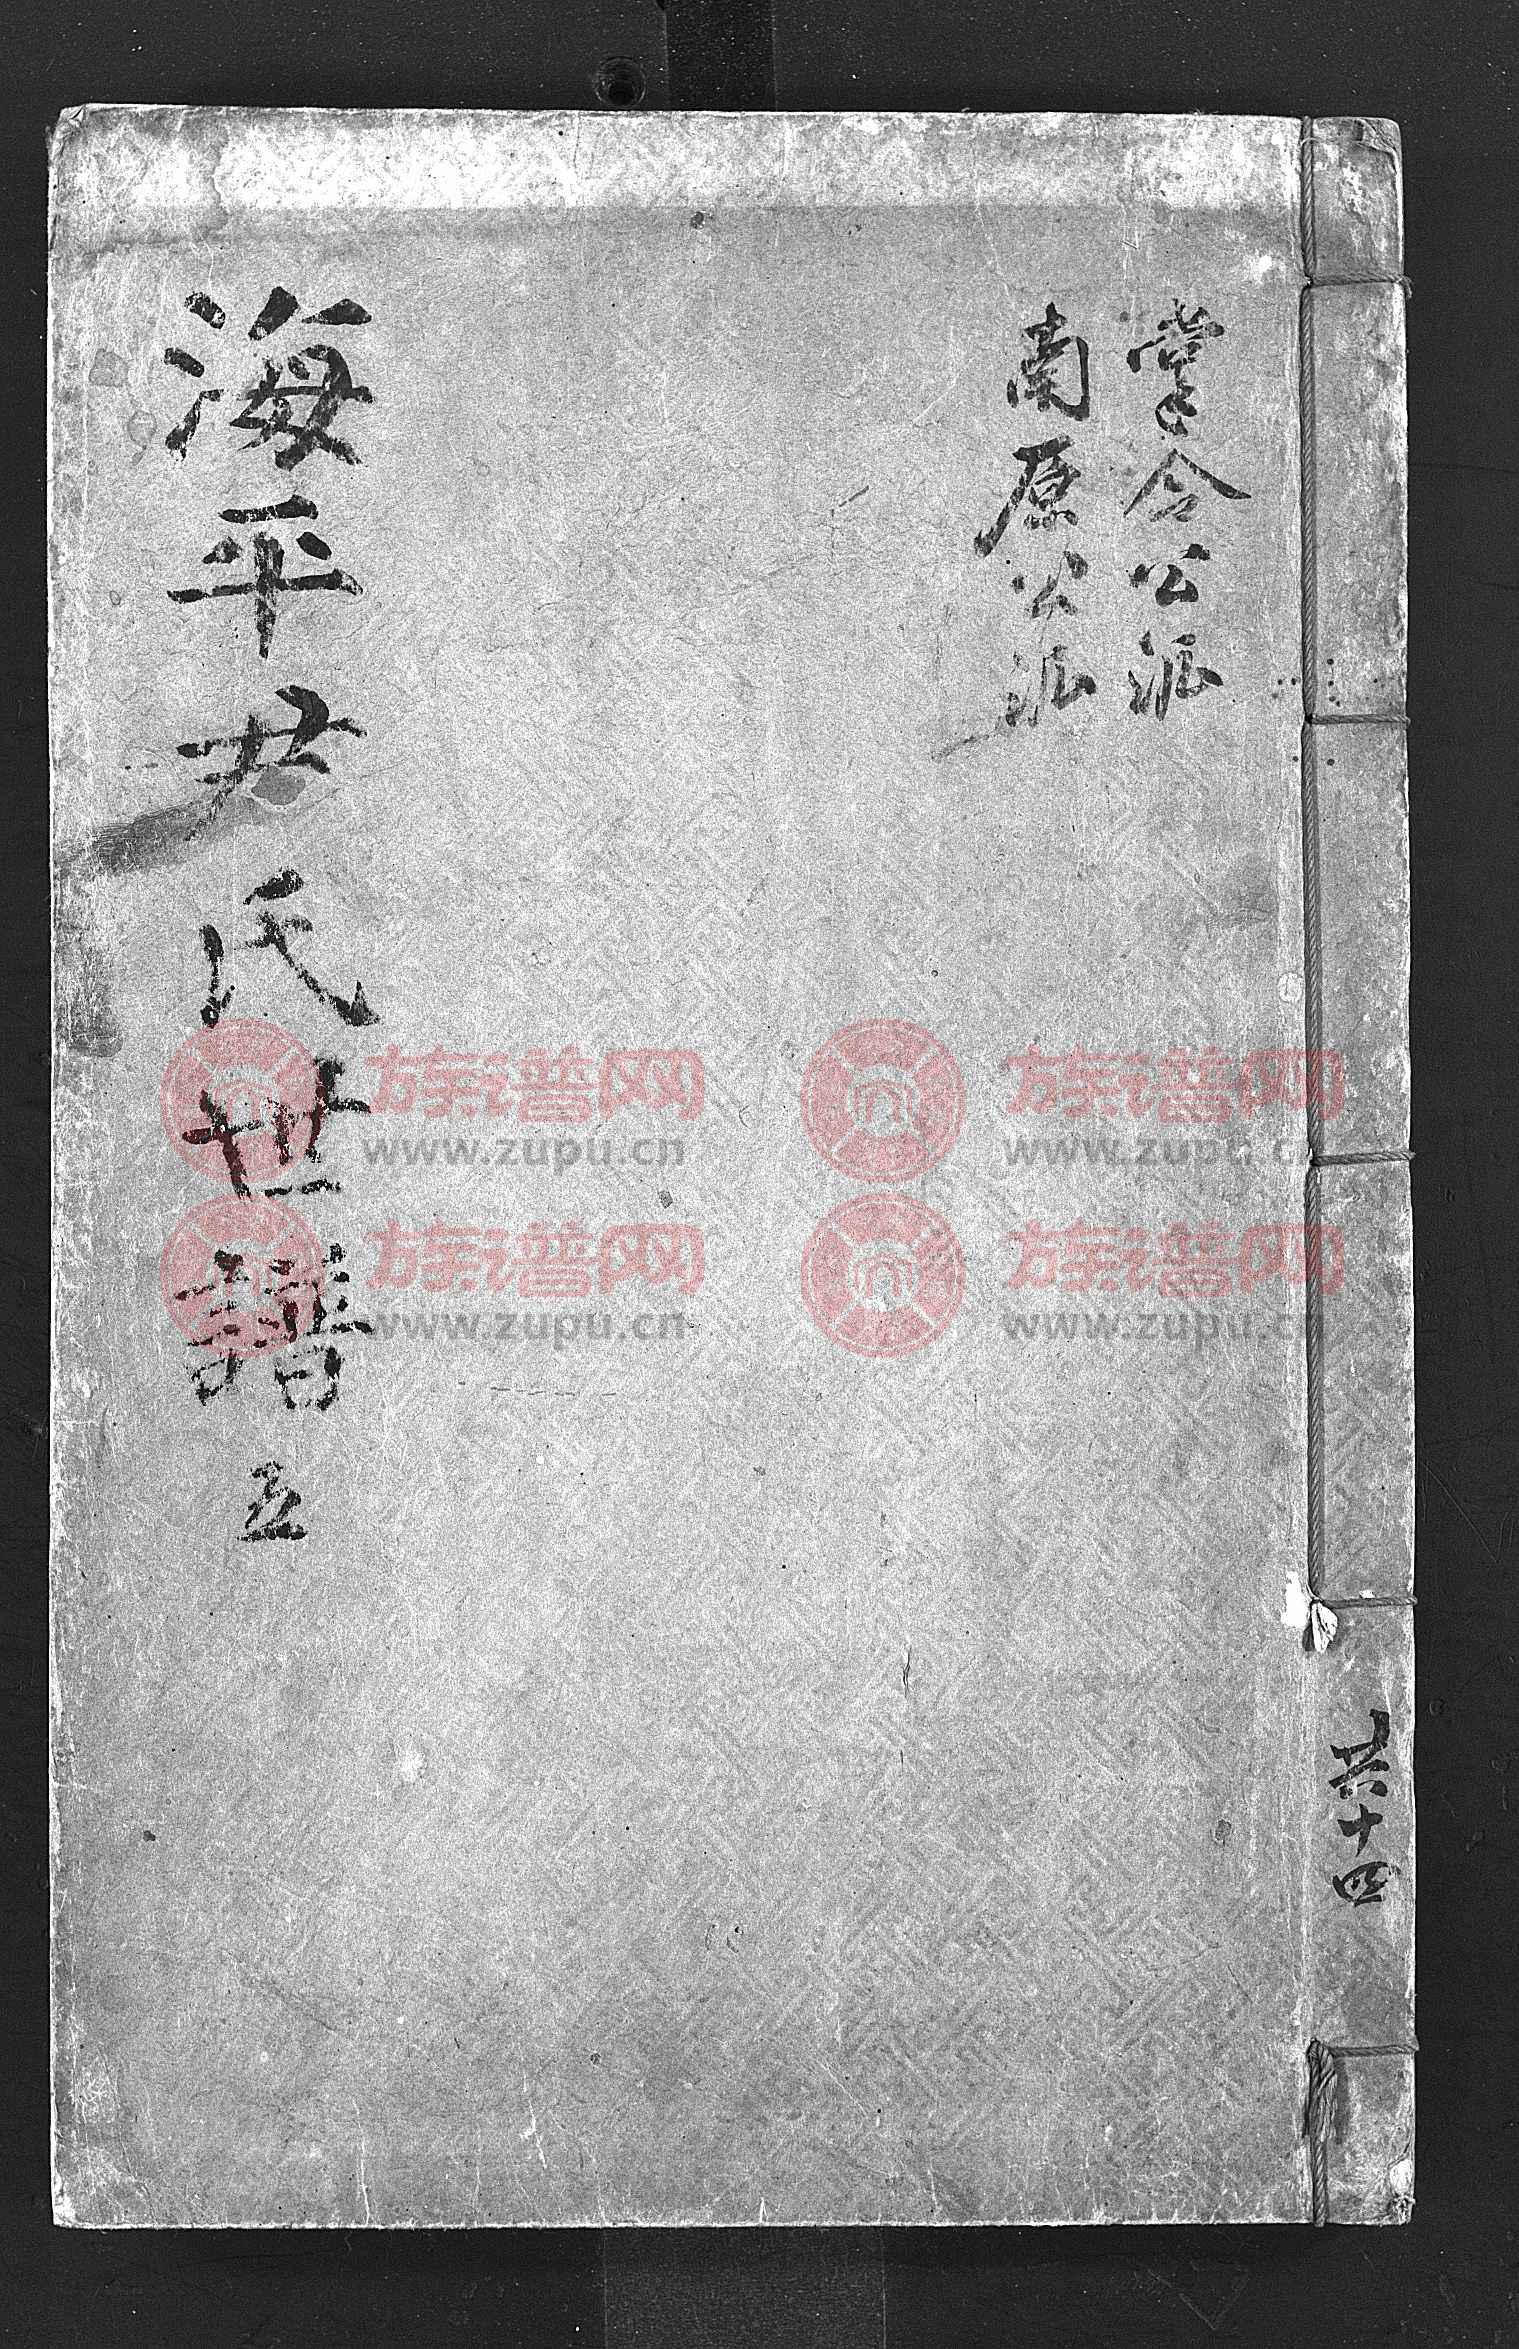 掌令公派
南原公派
海平尹氏世譜 五
共十四
族谱网
www.zupu.cn
族谱网
www.zupu.cn
族谱网
www.zupu.cn
族谱网
www.zupu.cn